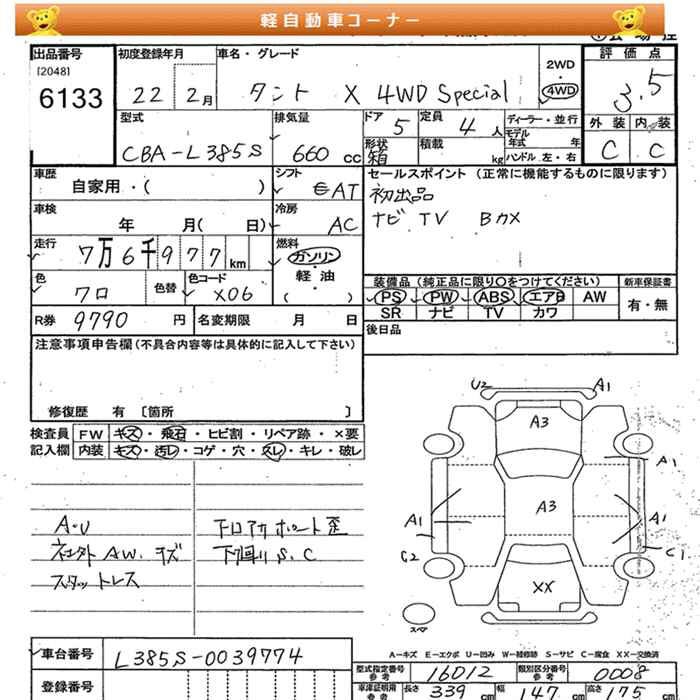 軽自動車コーナー
出品番号
[2048]
6133
初度登録年月
22 2月
車名・グレード
タント X 4WD Special
2WD
・
4WD
評価点
3.5
型式
CBA-L385S
排気量
660 cc
ドア
5
定員
4人
形状
箱
積載
kg
ディーラー・並行
モデル
年式 年
ハンドル 左・右
外装 内装
C C
車歴
自家用・( )
シフト
AT
セールスポイント (正常に機能するものに限ります)
初出品
ナビ TV Bカメ
車検
年 月( 日)
冷房
AC
走行
7万6千977km
燃料
ガソリン
・
軽油
( )
色
クロ
色替
色コード
X06
装備品 (純正品に限り○をつけてください)
新車保証書
PS PW ABS エアB AW
有・無
SR ナビ TV カワ
R券 9790 円
名変期限 月 日
後日品
注意事項申告欄 (不具合内容等は具体的に記入して下さい)
修復歴 有 [箇所 ]
検査員
記入欄
FW キズ・飛石・ヒビ割・リペア跡・×要
内装 キズ・汚レ・コゲ・穴・スレ・キレ・破レ
A・U
社外AW、キズ
スタットレス
下回り S、C
U2 A1
A3
A1
A3
A1 A1
C2 C1
XX
スペア
A-キズ E-エクボ U-凹み W-補修跡 S-サビ C-腐食 XX-交換済
車台番号
L385S-0039774
登録番号
型式指定番号
参考
16012
類別区分番号
参考
0008
車庫証明用
参考
長さ 339 cm 幅 147 cm 高さ 175 cm